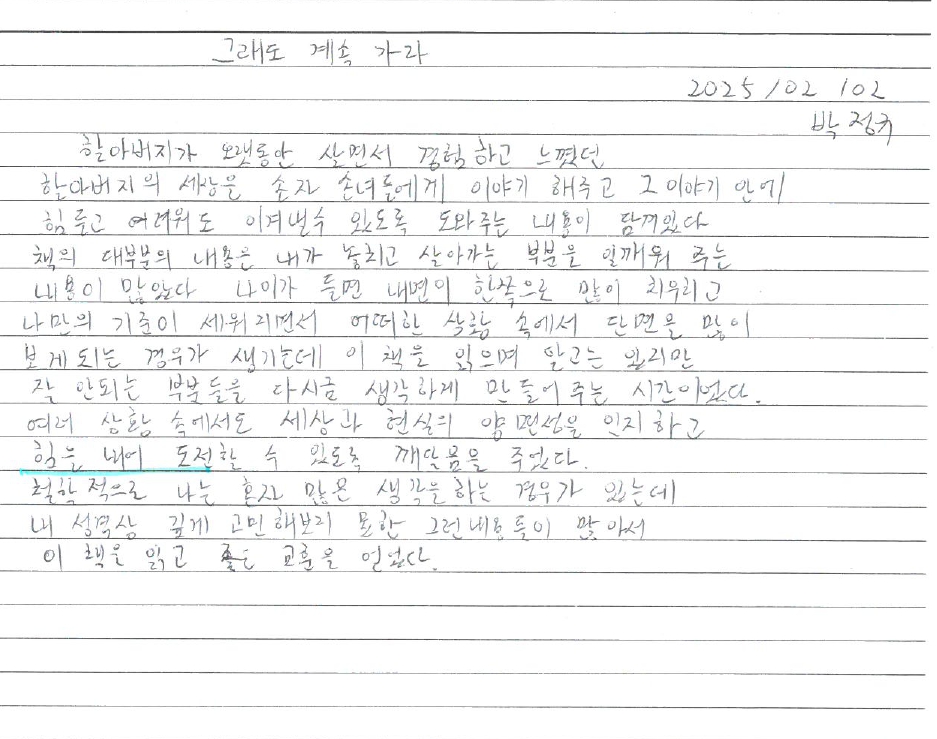 그래도 계속 가라
2025/02/02
박정규
할아버지가 오랫동안 살면서 경험하고 느꼈던
할아버지의 세상을 손자 손녀들에게 이야기 해주고 그 이야기 안에
힘들고 어려워도 이겨낼수 있도록 도와주는 내용이 담겨있다
책의 대부분의 내용은 내가 놓치고 살아가는 부분을 일깨워 주는
내용이 많았다 나이가 들면 내면이 한쪽으로 많이 치우리고
나만의 기준이 세워지면서 어떠한 상황 속에서 단면을 많이
보게되는 경우가 생기는데 이 책을 읽으며 알고는 있지만
잘 안되는 부분들을 다시금 생각하게 만들어주는 시간이었다.
여러 상황 속에서도 세상과 현실의 양면성을 인지하고
힘을 내어 도전할 수 있도록 깨달음을 주었다.
철학적으로 나는 혼자 많은 생각을 하는 경우가 있는데
내 성격상 깊게 고민해보지 못한 그런내용들이 많아서
이 책을 읽고 좋은 교훈을 얻었다.